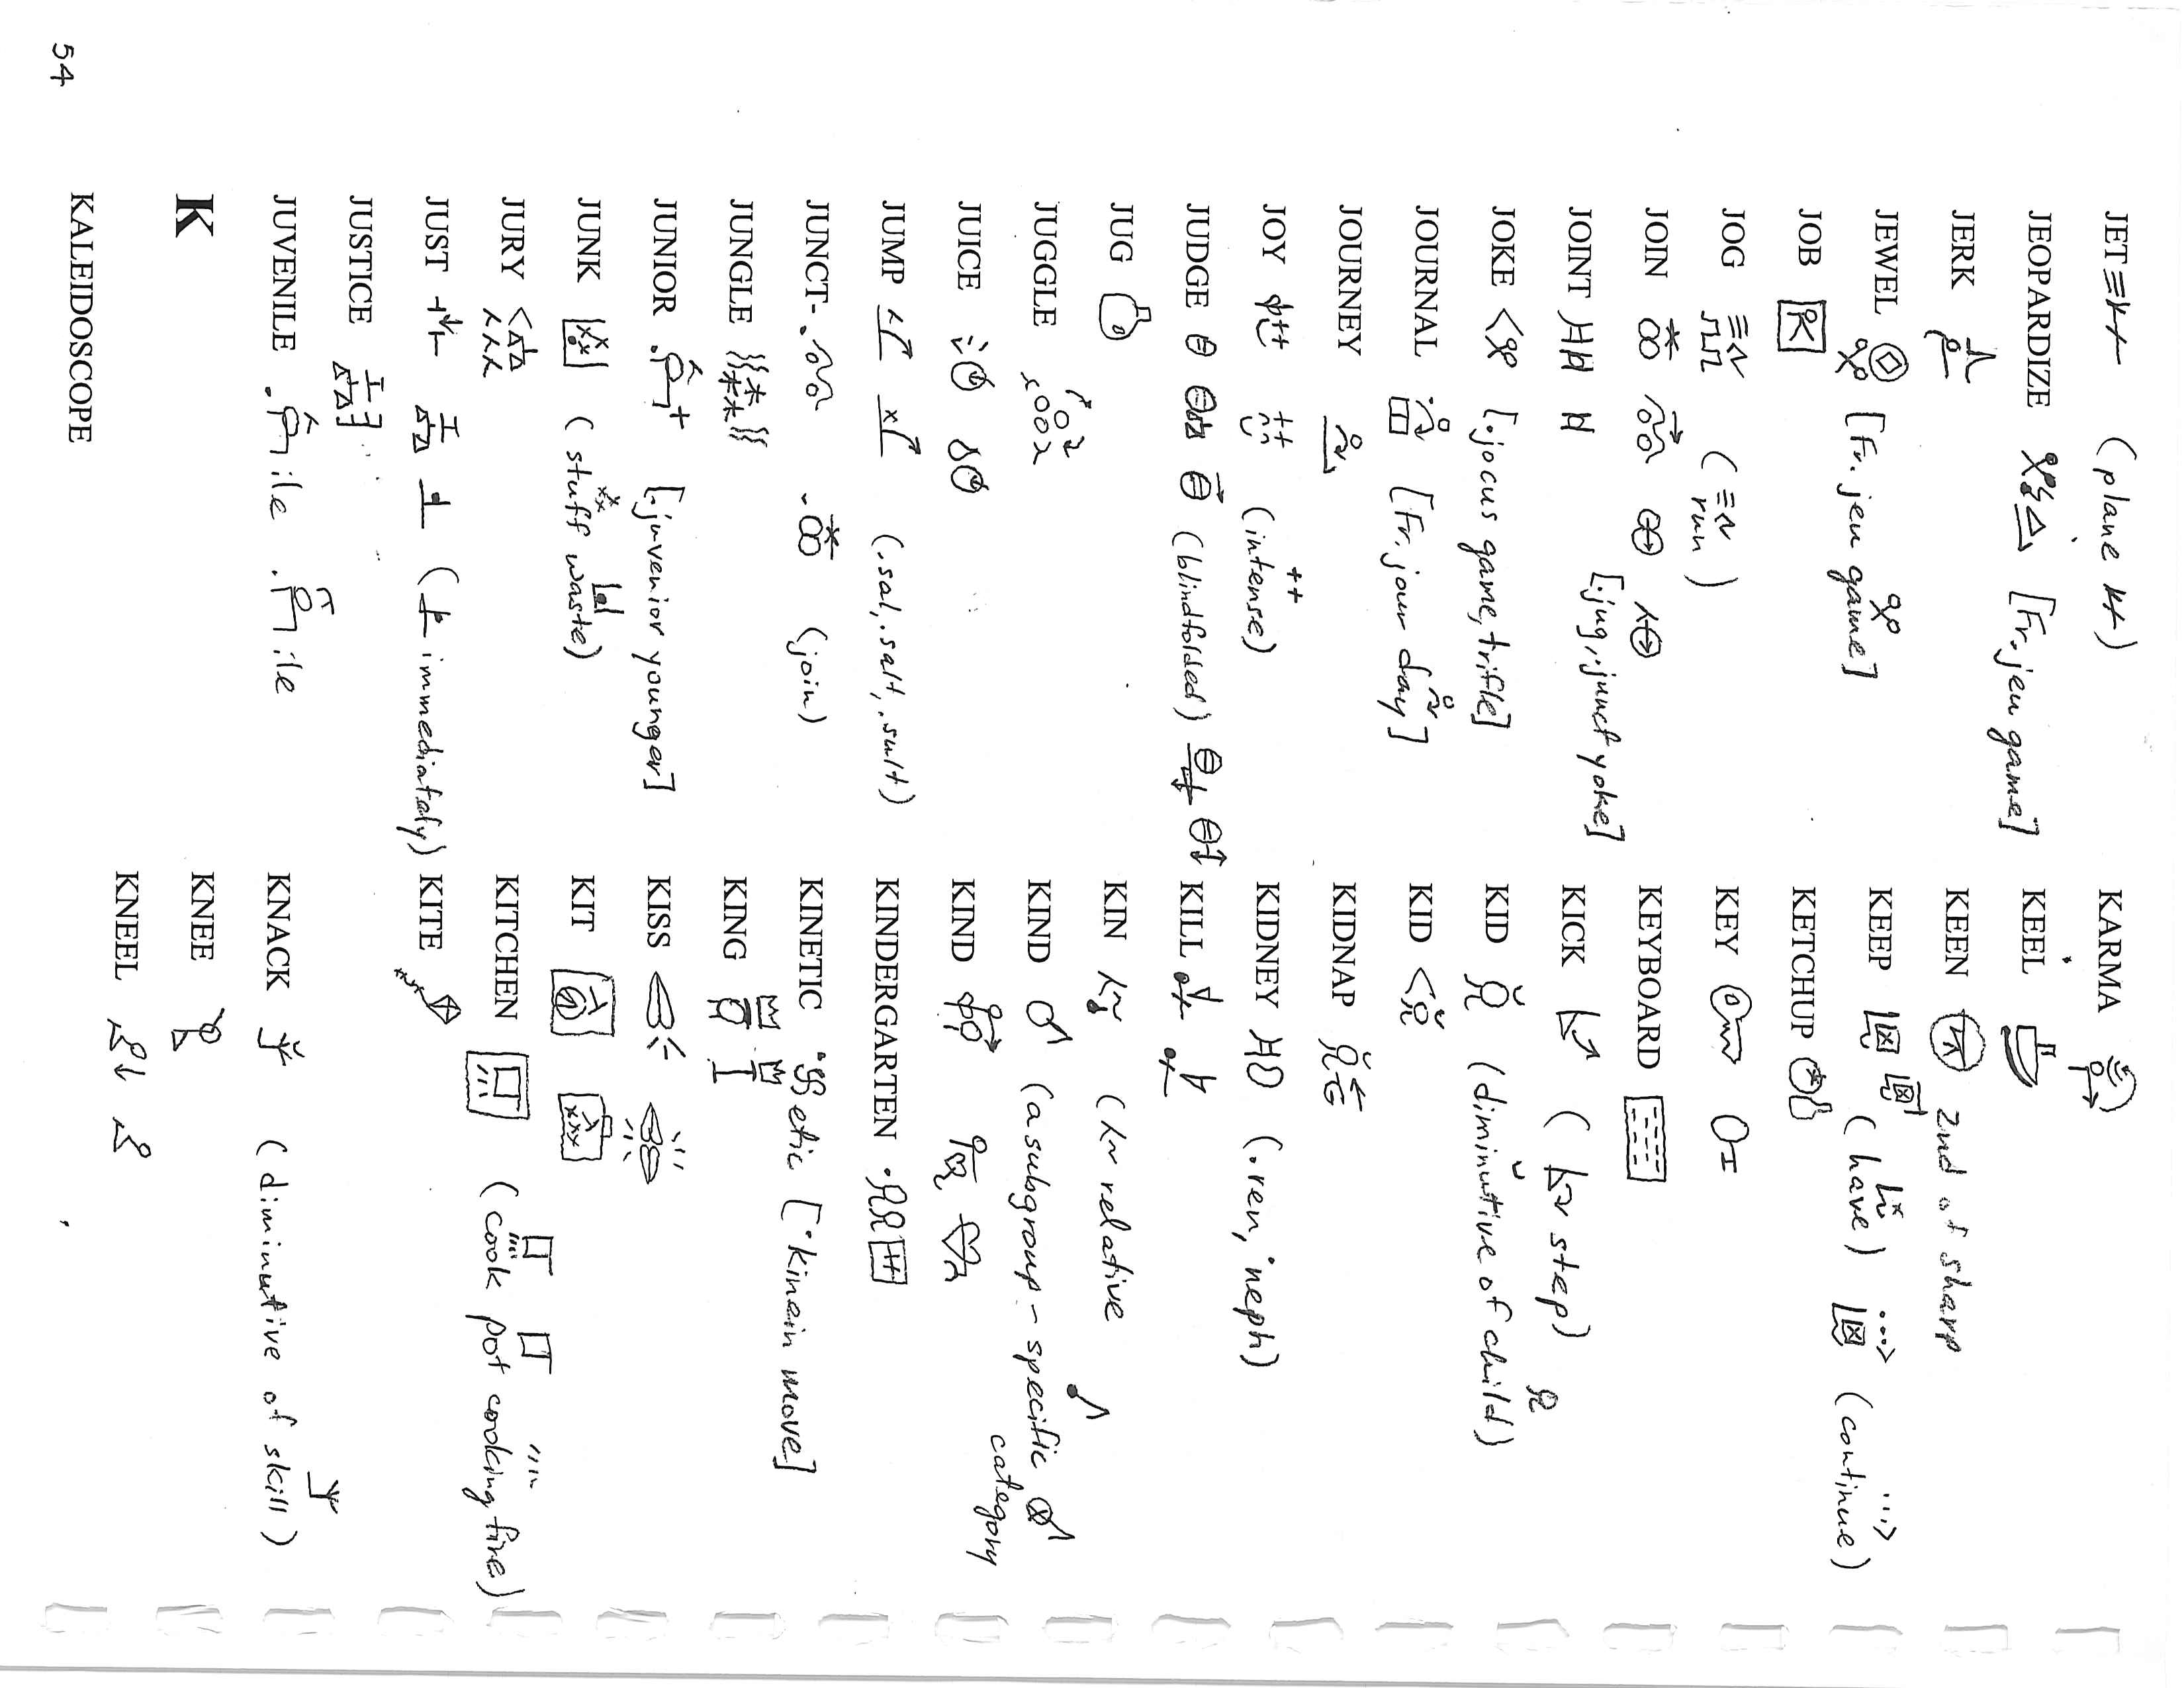 JET (plane)
JEOPARDIZE [Fr. jeu game]
JERK
JEWEL [Fr. jeu game]
JOB
JOG (run)
JOIN
JOINT [.jug, .junct yoke]
JOKE [.jocus game, trifle]
JOURNAL [Fr. jour day]
JOURNEY
JOY (intense)
JUDGE (blindfolded)
JUG
JUGGLE
JUICE
JUMP (.sal, .salt, .sult)
JUNCT- (join)
JUNGLE
JUNIOR [.juvenior younger]
JUNK (stuff waste)
JURY
JUST (immediately)
JUSTICE
JUVENILE ile ile
K
KALEIDOSCOPE
KARMA
KEEL
KEEN 2nd of sharp
KEEP (have) (continue)
KETCHUP
KEY
KEYBOARD
KICK (step)
KID (diminutive of child)
KID
KIDNAP
KIDNEY (.ren, ·neph)
KILL
KIN (relative)
KIND (a subgroup - specific category
KIND
KINDERGARTEN
KINETIC etic [·kinein move]
KING
KISS
KIT
KITCHEN (cook pot cooking fire)
KITE
KNACK (diminutive of skill)
KNEE
KNEEL
54